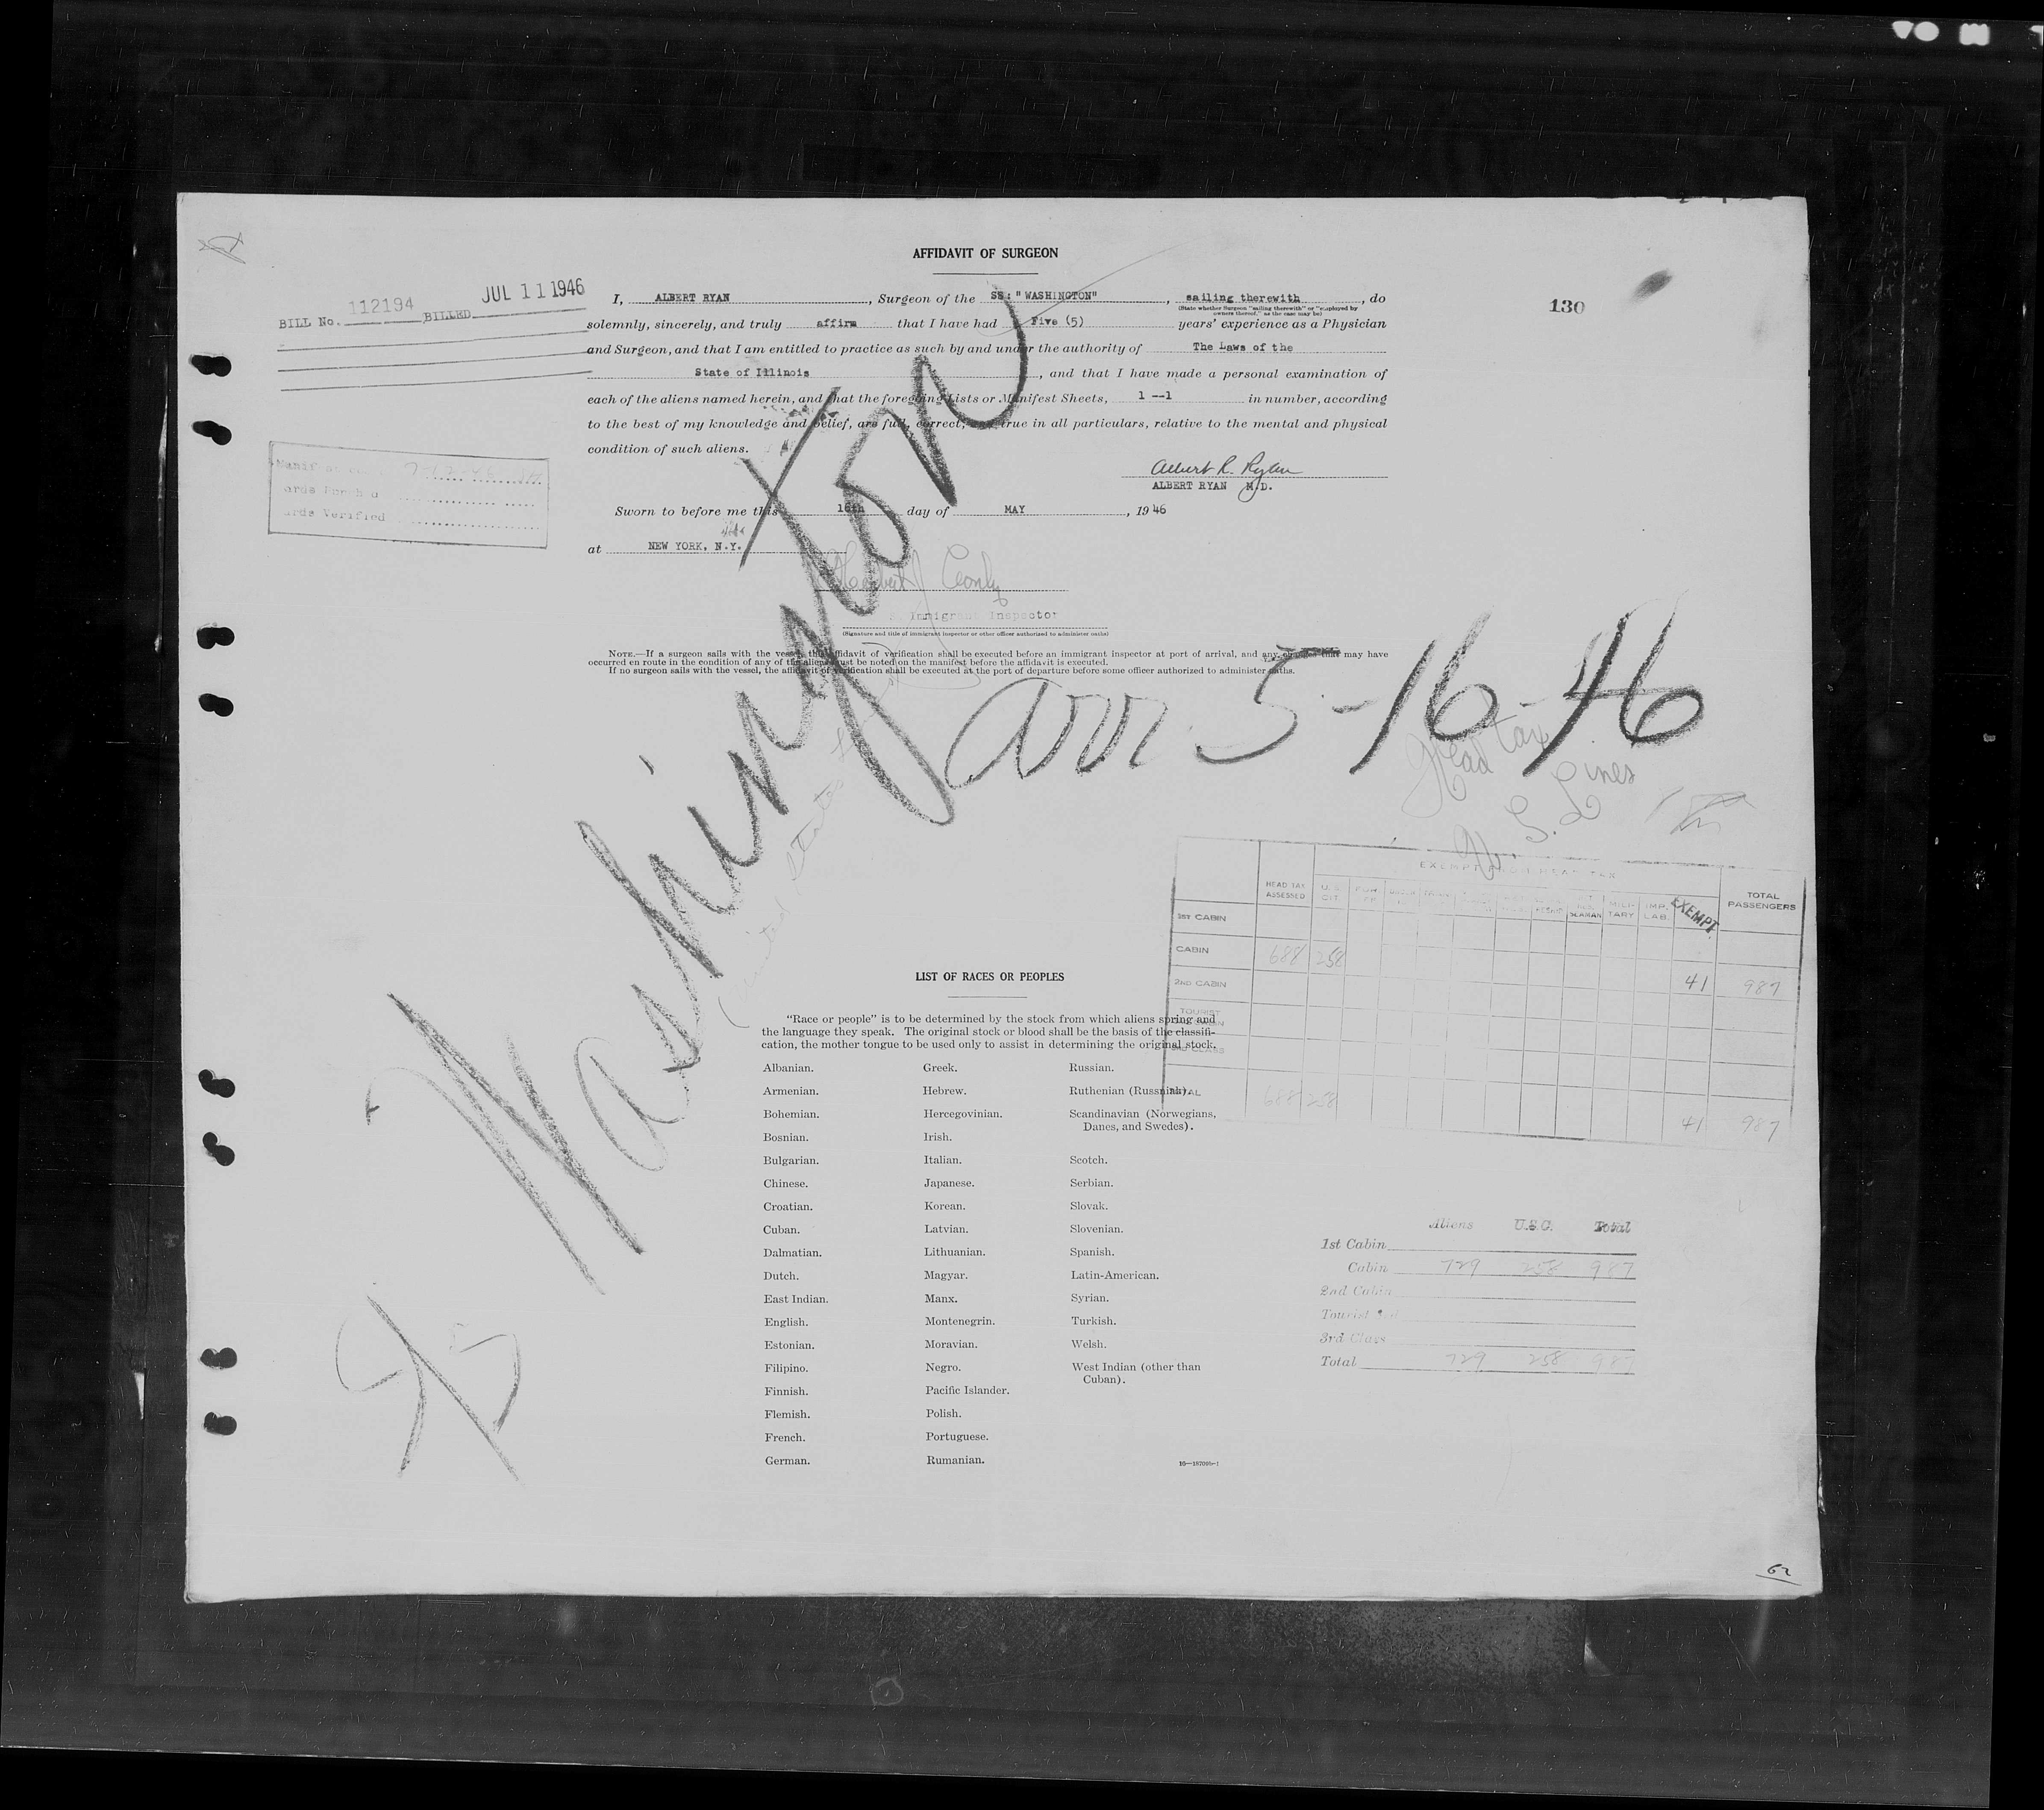 AFFIDAVIT OF SURGEON
130
BILL No. 112194 BILLED JUL 11 1946
I, ALBERT RYAN, Surgeon of the SS: "WASHINGTON", sailing therewith, do
(State whether Surgeon "sailing therewith" or "employed by
owners thereof," as the case may be)
solemnly, sincerely, and truly affirm that I have had Five (5) years' experience as a Physician
and Surgeon, and that I am entitled to practice as such by and under the authority of The Laws of the
State of Illinois, and that I have made a personal examination of
each of the aliens named herein, and that the foregoing Lists or Manifest Sheets, 1 --1 in number, according
to the best of my knowledge and belief, are full, correct, and true in all particulars, relative to the mental and physical
condition of such aliens.
Albert R. Ryan
ALBERT RYAN M.D.
Manif
ards Punch d
ards Verified
Sworn to before me this 16th day of MAY, 1946
at NEW YORK, N.Y.
Immigrant Inspector
(Signature and title of immigrant inspector or other officer authorized to administer oaths)
NOTE.—If a surgeon sails with the vessel, this affidavit of verification shall be executed before an immigrant inspector at port of arrival, and any changes that may have
occurred en route in the condition of any of the aliens must be noted on the manifest before the affidavit is executed.
If no surgeon sails with the vessel, the affidavit of verification shall be executed at the port of departure before some officer authorized to administer oaths.
Washington
arr. 5-16-46
Head tax
U. S. Lines
United States
EXEMPT FROM HEAD TAX
HEAD TAX ASSESSED U.S. CIT. SEAMAN MILI-TARY IMP. LAB. EXEMPT TOTAL PASSENGERS
1ST CABIN
CABIN 688 258
2ND CABIN 41 987
TOURIST
3RD CLASS
TOTAL 688 258 41 987
LIST OF RACES OR PEOPLES
"Race or people" is to be determined by the stock from which aliens spring and
the language they speak. The original stock or blood shall be the basis of the classifi-
cation, the mother tongue to be used only to assist in determining the original stock.
Albanian.
Armenian.
Bohemian.
Bosnian.
Bulgarian.
Chinese.
Croatian.
Cuban.
Dalmatian.
Dutch.
East Indian.
English.
Estonian.
Filipino.
Finnish.
Flemish.
French.
German.
Greek.
Hebrew.
Hercegovinian.
Irish.
Italian.
Japanese.
Korean.
Latvian.
Lithuanian.
Magyar.
Manx.
Montenegrin.
Moravian.
Negro.
Pacific Islander.
Polish.
Portuguese.
Rumanian.
Russian.
Ruthenian (Russniak).
Scandinavian (Norwegians,
Danes, and Swedes).
Scotch.
Serbian.
Slovak.
Slovenian.
Spanish.
Latin-American.
Syrian.
Turkish.
Welsh.
West Indian (other than
Cuban).
Aliens U.S.C. Total
1st Cabin
Cabin 729 258 987
2nd Cabin
Tourist
3rd Class
Total 729 258 987
62